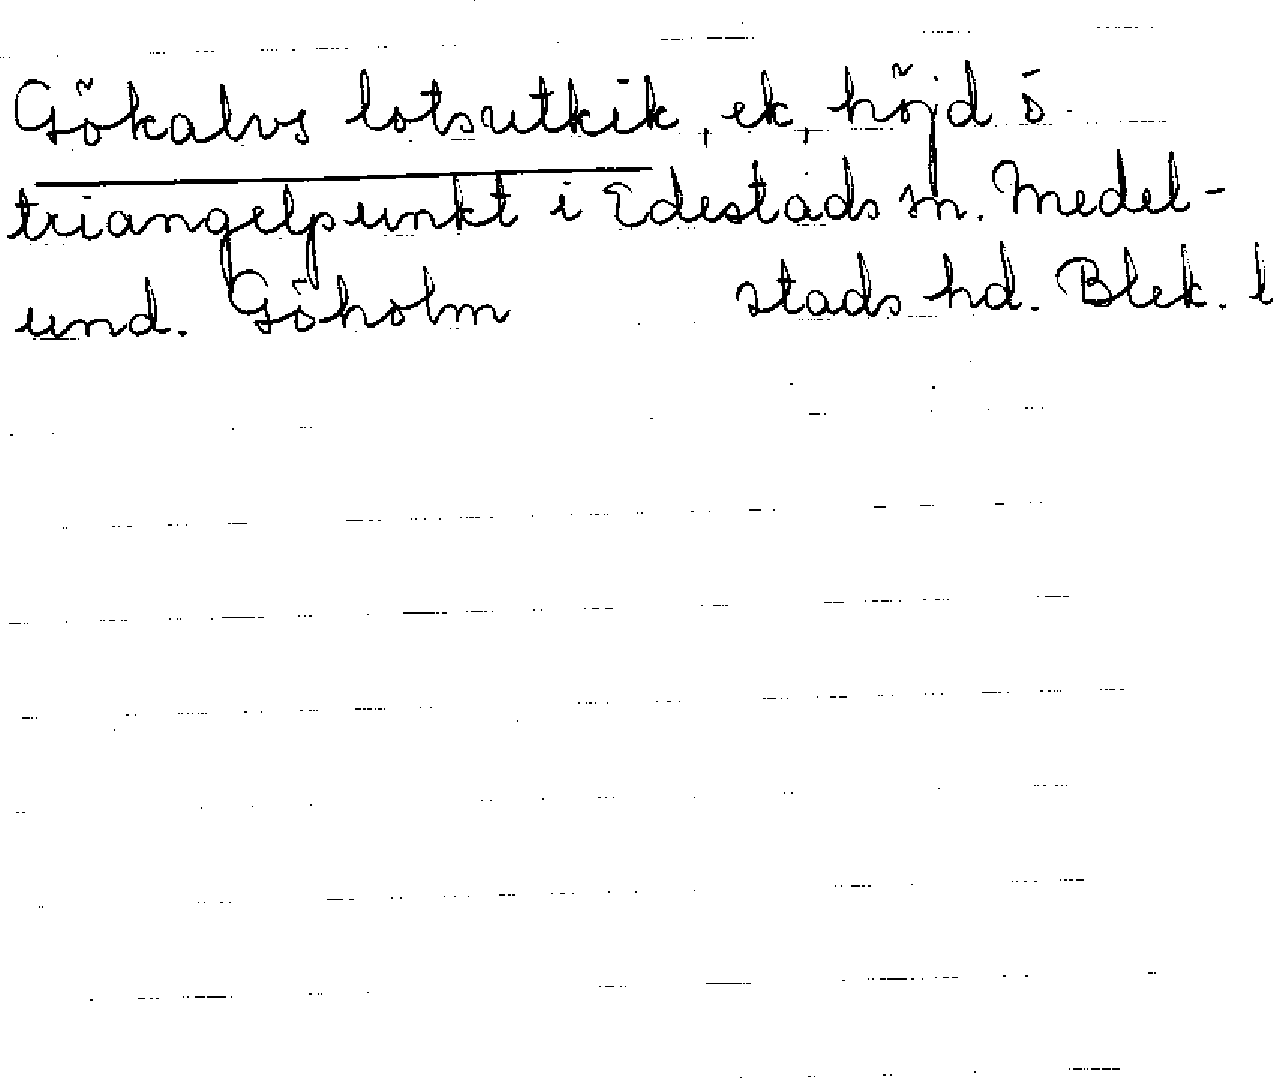 Gökalvs lotsutkik, ek, höjd ö
triangelpunkt i Edestads sn. Medel-
und. Göholm stads hd. Blek. l